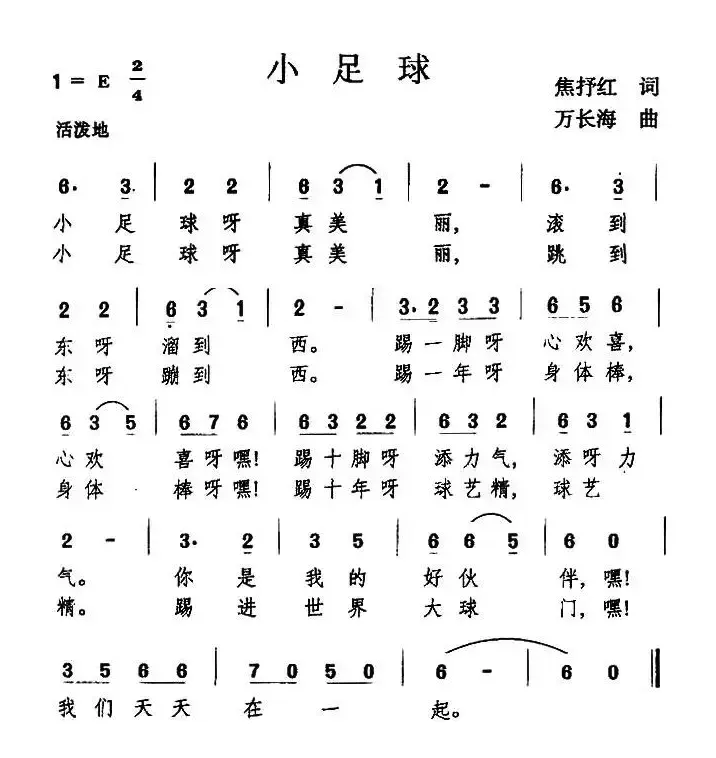 小足球
1=E 2/4
焦抒红 词
万长海 曲
活泼地
6. 3. | 2 2 | 6 3 1 | 2 - | 6. 3 |
小 足 球 呀 真 美 丽, 滚 到
小 足 球 呀 真 美 丽, 跳 到
2 2 | 6 3 1 | 2 - | 3. 2 3 3 | 6 5 6 |
东 呀 溜 到 西。 踢 一 脚 呀 心 欢 喜,
东 呀 蹦 到 西。 踢 一 年 呀 身 体 棒,
6 3 5 | 6 7 6 | 6 3 2 2 | 6 3 2 | 6 3 1 |
心 欢 喜 呀 嘿! 踢 十 脚 呀 添 力 气, 添 呀 力
身 体 棒 呀 嘿! 踢 十 年 呀 球 艺 精, 球 艺
2 - | 3. 2 | 3 5 | 6 6 5 | 6 0 |
气。 你 是 我 的 好 伙 伴, 嘿!
精。 踢 进 世 界 大 球 门, 嘿!
3 5 6 6 | 7 0 5 0 | 6 - | 6 0 ‖
我 们 天 天 在 一 起。